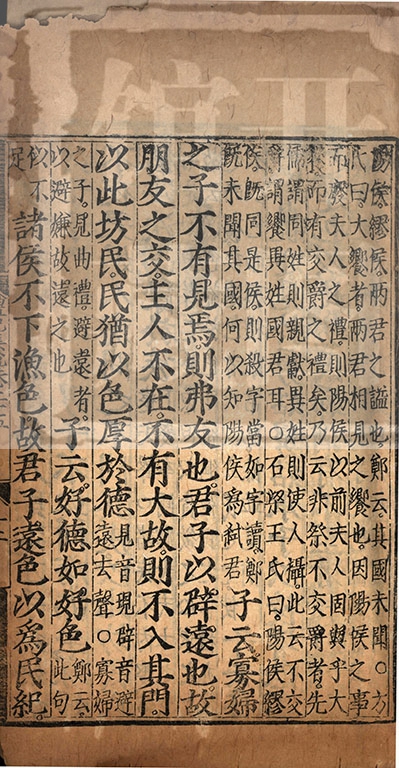 陽侯繆侯兩君之謚也鄭云其國未聞○方
氏曰大饗者兩君相見之饗也因陽侯之事
而廢夫人之禮則陽侯以前夫人固與乎大
饗而有交爵之禮矣乃云非祭不交爵者先
儒謂同姓則親獻異姓則使人攝此云不交
爵謂饗異姓國君耳○石梁王氏曰陽侯繆
侯既同是侯則殺字當如字讀鄭
既未聞其國何以知陽侯爲弒君
子云寡婦
之子不有見焉則弗友也君子以辟遠也故
朋友之交主人不在不有大故則不入其門
以此坊民民猶以色厚於德
見音現辟音避
遠去聲○寡婦
之子見曲禮避遠者
以避嫌故遠之也
子云好德如好色
鄭云
此句
似不
足
諸侯不下漁色故君子遠色以爲民紀